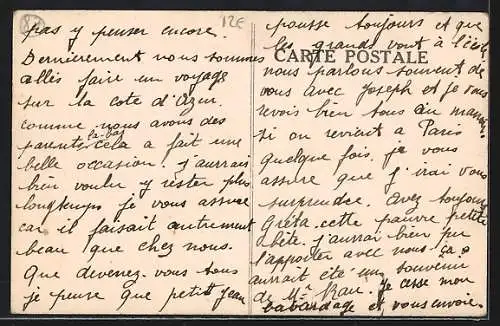 12E
pas y penser encore.
Dernièrement nous sommes
allés faire un voyage
sur la cote d'Azur.
comme nous avons des
là-bas
parents cela a fait une
belle occasion. j'aurais
bien voulu y rester plus
longtemps je vous assure
car il faisait autrement
beau que chez nous.
Que devenez-vous tous
je pense que petit Jean
pousse toujours et que
les grands vont à l'école
CARTE POSTALE
nous parlons souvent de
vous avec Joseph et je vous
revois bien tous au
si on revient à Paris
quelque fois. je vous
assure que j'irai vous
surprendre. avez toujours
Gréta. cette pauvre petite
bête. j'aurai bien pu
l'apporter avec nous. ça
aurait été un souvenir
de Mr je cesse mon
babardage et vous envoie.